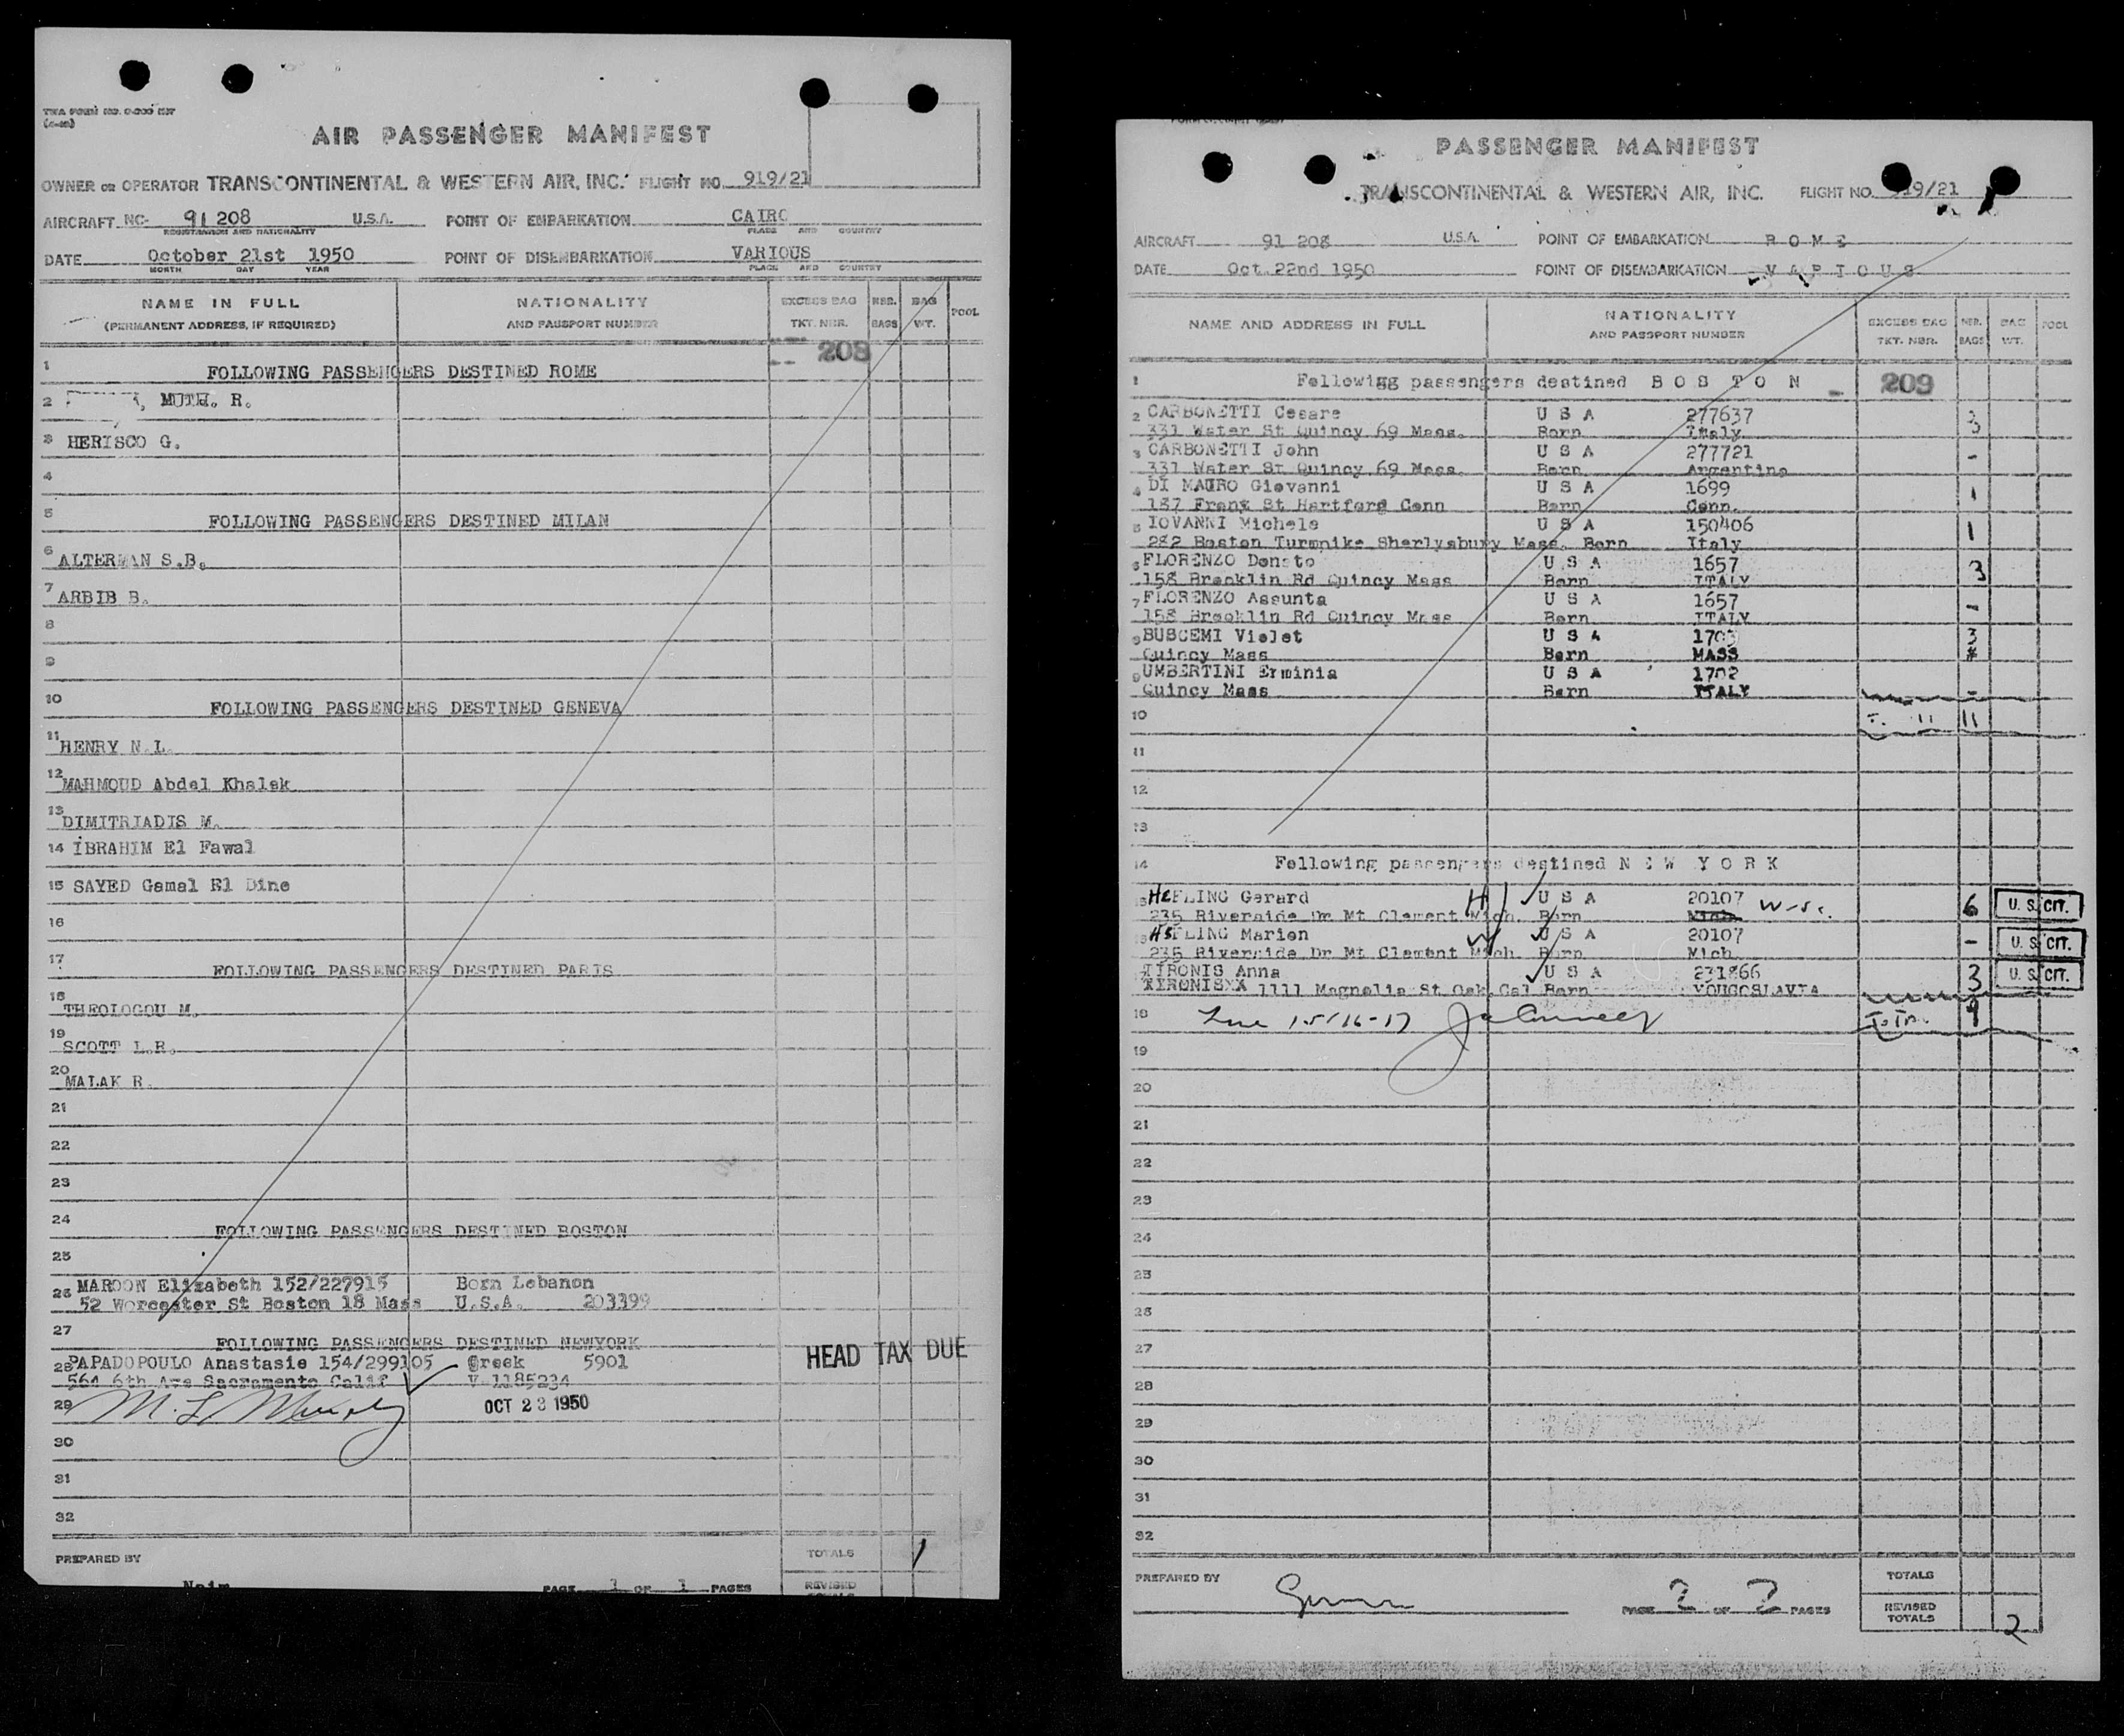 AIR PASSENGER MANIFEST
OWNER OR OPERATOR TRANSCONTINENTAL & WESTERN AIR, INC. FLIGHT NO. 919/21
AIRCRAFT NC- 91208 U.S.A. POINT OF EMBARKATION CAIRO
REGISTRATION AND NATIONALITY PLACE AND COUNTRY
DATE October 21st 1950 POINT OF DISEMBARKATION VARIOUS
MONTH DAY YEAR PLACE AND COUNTRY
NAME IN FULL NATIONALITY EXCESS BAG NBR. BAG POOL
(PERMANENT ADDRESS, IF REQUIRED) AND PASSPORT NUMBER TKT. NBR. BAGS WT.
208
1 FOLLOWING PASSENGERS DESTINED ROME
2 , MUTH. R.
3 HERISCO G.
4
5 FOLLOWING PASSENGERS DESTINED MILAN
6 ALTERMAN S.B.
7 ARBIB B.
8
9
10 FOLLOWING PASSENGERS DESTINED GENEVA
11 HENRY N.L.
12 MAHMOUD Abdel Khalek
13 DIMITRIADIS M.
14 IBRAHIM El Fawal
15 SAYED Gamal El Dine
16
17 FOLLOWING PASSENGERS DESTINED PARIS
18 THEOLOGOU M.
19 SCOTT L.R.
20 MALAK R.
21
22
23
24 FOLLOWING PASSENGERS DESTINED BOSTON
25
26 MAROON Elizabeth 152/227915 Born Lebanon
52 Worcester St Boston 18 Mass U.S.A. 203399
27 FOLLOWING PASSENGERS DESTINED NEWYORK
28 PAPADOPOULO Anastasie 154/299105 Greek 5901
HEAD TAX DUE
564 6th Ave Sacramento Calif V 1185234
29 OCT 23 1950
30
31
32
PREPARED BY TOTALS 1
Naim PAGE 1 OF 1 PAGES REVISED TOTALS
PASSENGER MANIFEST
TRANSCONTINENTAL & WESTERN AIR, INC. FLIGHT NO. 919/21
AIRCRAFT 91 208 U.S.A. POINT OF EMBARKATION ROME
DATE Oct.22nd 1950 POINT OF DISEMBARKATION VARIOUS
NAME AND ADDRESS IN FULL NATIONALITY EXCESS BAG NBR. BAG POOL
AND PASSPORT NUMBER TKT. NBR. BAGS WT.
1 Following passengers destined BOSTON 209
2 CARBONETTI Cesare U S A 277637 3
331 Water St Quincy 69 Mass. Born Italy
3 CARBONETTI John U S A 277721 -
331 Water St Quincy 69 Mass. Born Argentina
4 DI MAURO Giovanni U S A 1699 1
187 Front St Hartford Conn Born Conn.
5 IOVANNI Michele U S A 150406 1
282 Boston Turmnike Sherlysbury Mass. Born Italy
6 FLORENZO Donato U S A 1657 3
158 Brooklin Rd Quincy Mass Born ITALY
7 FLORENZO Assunta U S A 1657 -
158 Brooklin Rd Quincy Mass Born ITALY
8 BUSCEMI Violet U S A 1703 3
Quincy Mass Born MASS
9 UMBERTINI Erminia U S A 1702 -
Quincy Mass Born ITALY
10 11 11
11
12
13
14 Following passengers destined NEW YORK
15 HEFLING Gerard H U S A 20107 6 U.S. CIT.
235 Riverside Dr Mt Clement Mich. Born Mich
16 HEFLING Marion W U S A 20107 - U.S. CIT.
235 Riverside Dr Mt Clement Mich. Born Mich.
TIRONIS Anna U S A 231866 3 U.S. CIT.
1111 Magnolia St Oak.Cal Born YOUGOSLAVIA
18 Line 15/16-17 9
19
20
21
22
23
24
25
26
27
28
29
30
31
32
PREPARED BY TOTALS
PAGE 2 OF 2 PAGES REVISED TOTALS 2